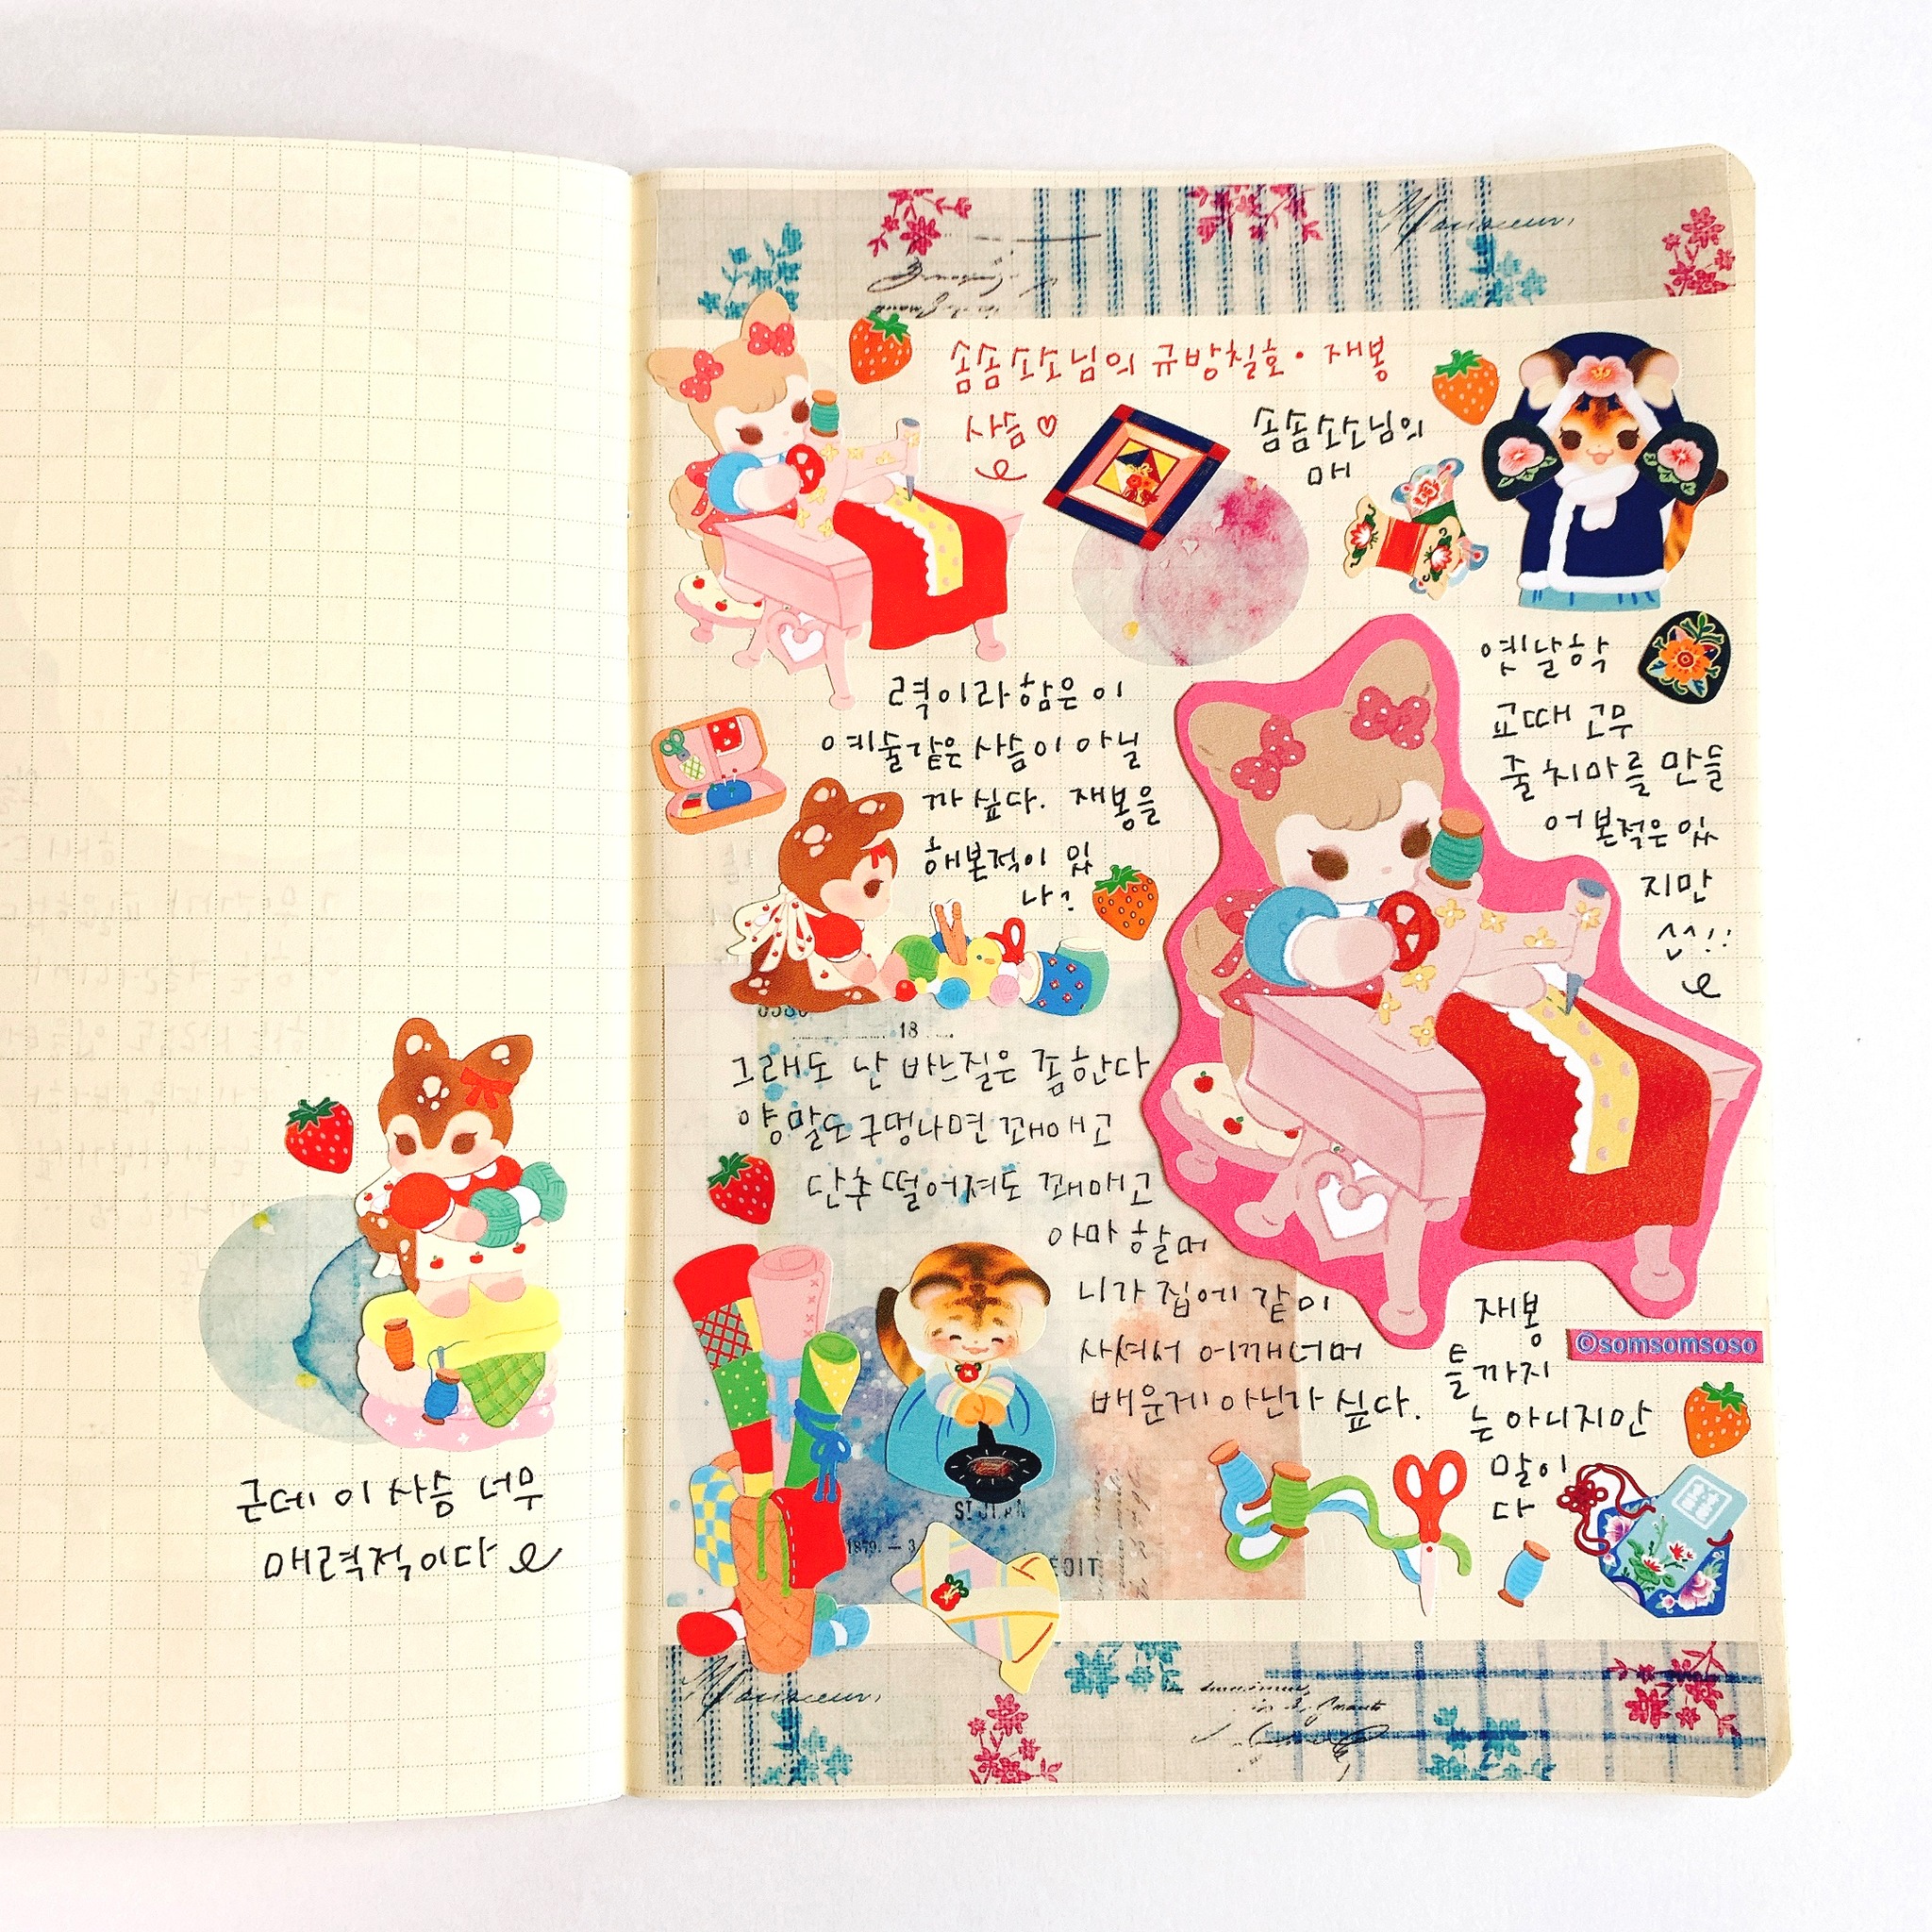 솜솜소소님의 규방칠호 · 재봉
사슴♡
솜솜소소님의
매
력이라 함은 이
예술같은 사슴이 아닐
까 싶다. 재봉을
해본적이 있
나?
옛날학
교때 고무
줄 치마를 만들
어 본적은 있
지만
ㅆㅆ!!
그래도 난 바느질은 좀한다
양말도 구멍나면 꼬매고
단추 떨어져도 꼬매고
아마 할머
니가 집에 같이
사셔서 어깨너머
배운게 아닌가 싶다.
재봉
틀까지
는 아니지만
말이
다
©somsomsoso
18
ST JEAN
1879. - 3
EDIT
Monsieur,
Monsieur,
근데 이 사슴 너무
매력적이다